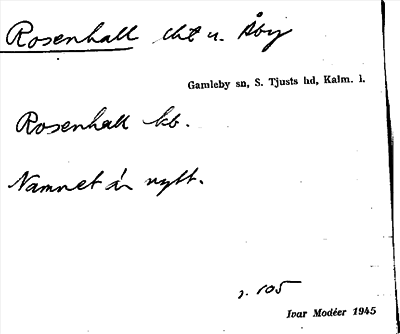 Rosenhall lht u. Åby
Gamleby sn, S. Tjusts hd, Kalm. l.
Rosenhall kb.
Namnet är nytt.
s. 105
Ivar Modéer 1945